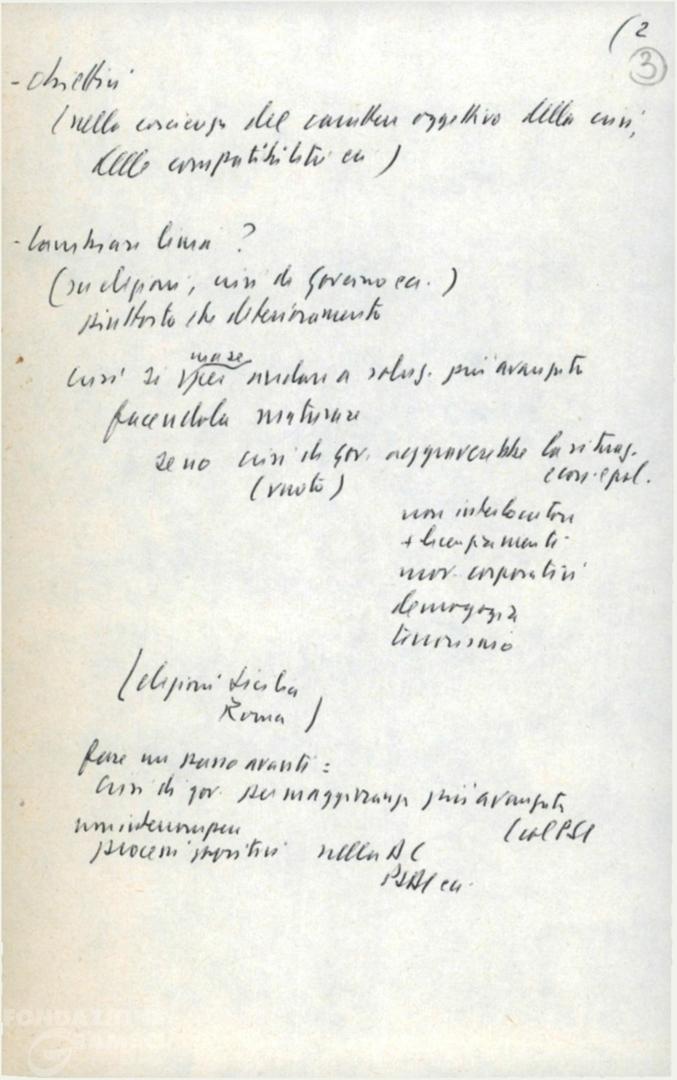 (2
3
- obiettivi
(nella coscienza del carattere oggettivo della crisi,
delle compatibilità ecc)
- cambiare linea ?
(su elezioni, crisi di governo ecc.)
piuttosto che deterioramento
così si andare a soluz. più avanzata
facendola maturare
se no crisi di gov. aggraverebbe la situaz.
(vuoto) econ. e pol.
non interlocutore
+ licenziamenti
mov. corporativi
demagogia
terrorismo
(elezioni Sicilia
Roma)
fare un passo avanti =
crisi di gov. per maggioranza più avanzata
non interrompere (col PSI
processi positivi nella DC
PSDI ecc.
FONDAZIONE
GRAMSCI